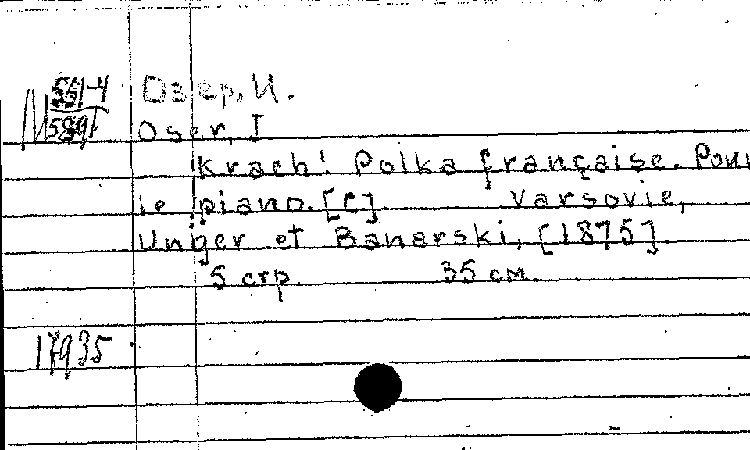 М 551-4
589
Озер, И.
Oser, I
Krach! Polka française. Pour
le piano. [C] Varsovie,
Unger et Banarski, [1875].
5 стр. 35 см.
17935